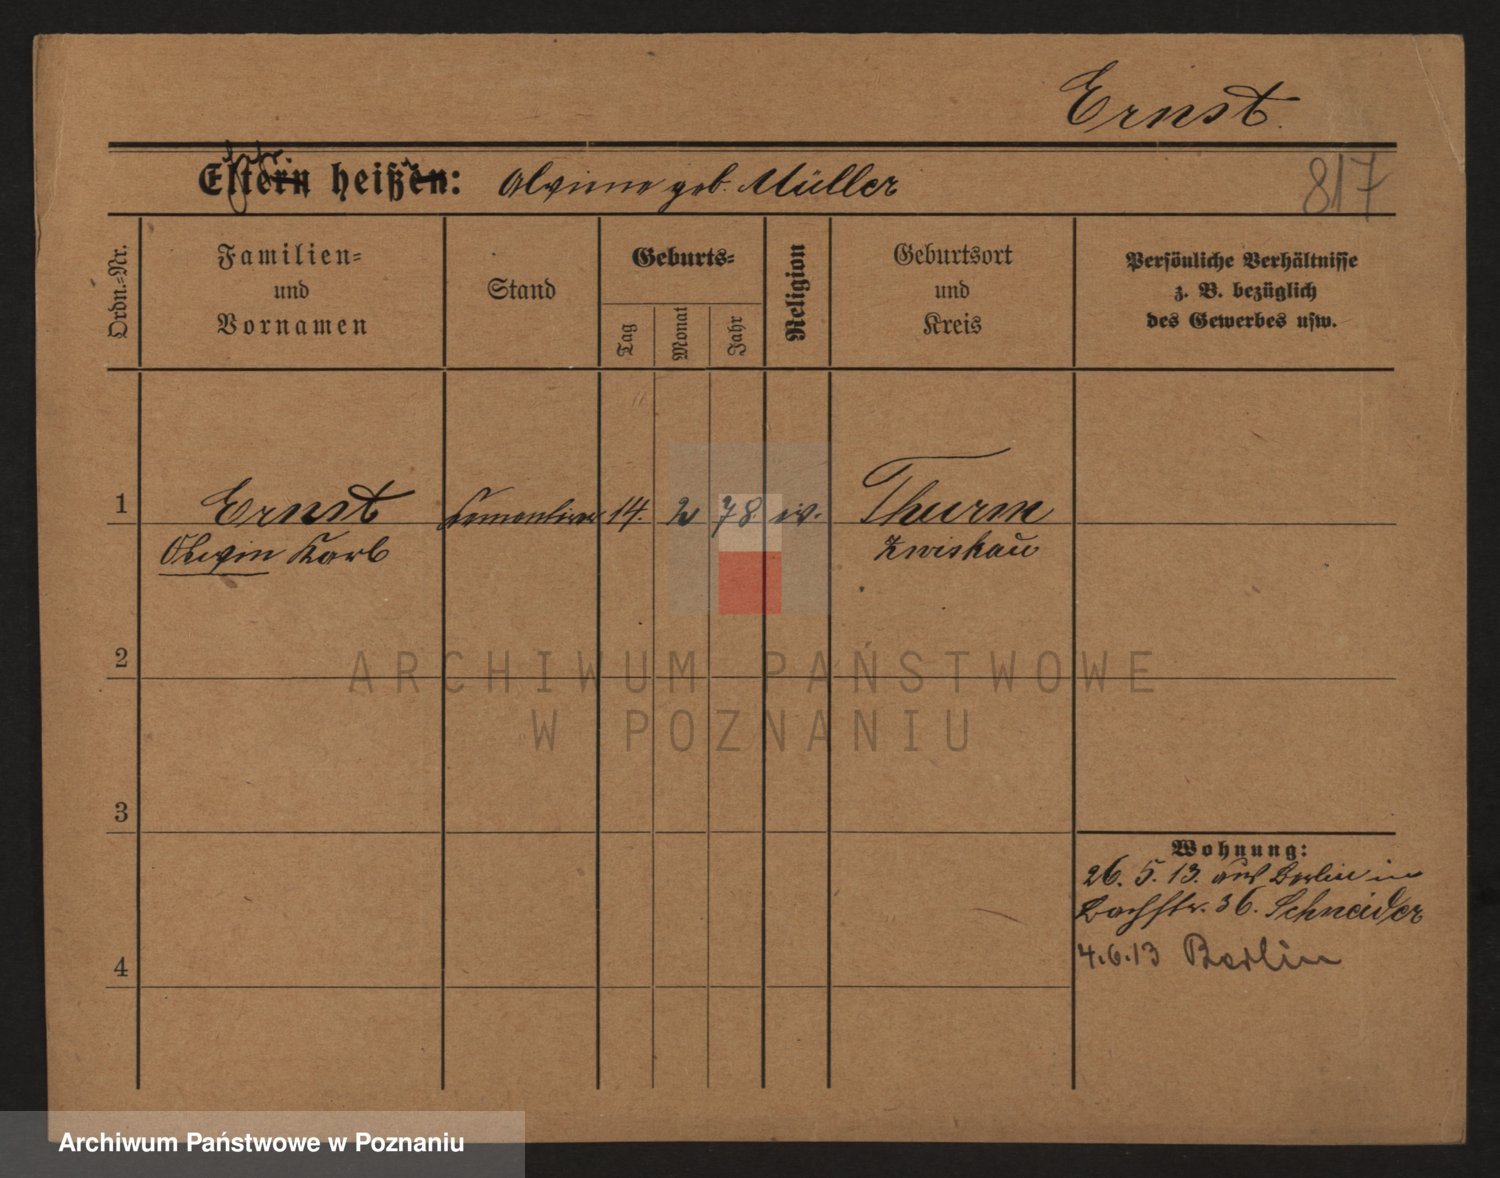 Ernst
Eltern heißen: geb. Müller
817
Ordn.=Nr.
Familien=
und
Vornamen
Stand
Geburts=
Tag
Monat
Jahr
Religion
Geburtsort
und
Kreis
Persönliche Verhältnisse
z. B. bezüglich
des Gewerbes usw.
1
Ernst
14. 2 78. ev.
Thurm
Karl
Zwickau
2
ARCHIWUM PAŃSTWOWE
W POZNANIU
3
Wohnung:
26. 5. 13. aus Berlin in
Bachstr. 36. Schneider
4.6.13 Berlin
4
Archiwum Państwowe w Poznaniu